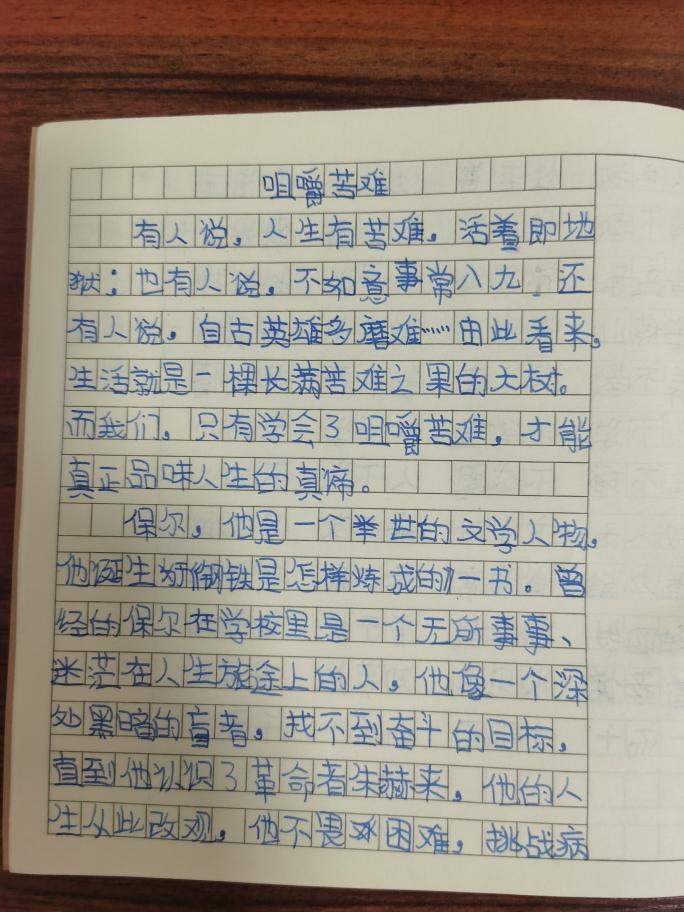 咀嚼苦难
有人说，人生有苦难，活着即地
狱；也有人说，不如意事常八九；还
有人说，自古英雄多磨难……由此看来，
生活就是一棵长满苦难之果的大树。
而我们，只有学会了咀嚼苦难，才能
真正品味人生的真谛。
保尔，他是一个举世的文学人物，
他诞生于《钢铁是怎样炼成的》一书。曾
经的保尔在学校里是一个无所事事、
迷茫在人生旅途上的人，他像一个深
处黑暗的盲者，找不到奋斗的目标，
直到他认识了革命者朱赫来，他的人
生从此改观，他不畏困难，挑战病